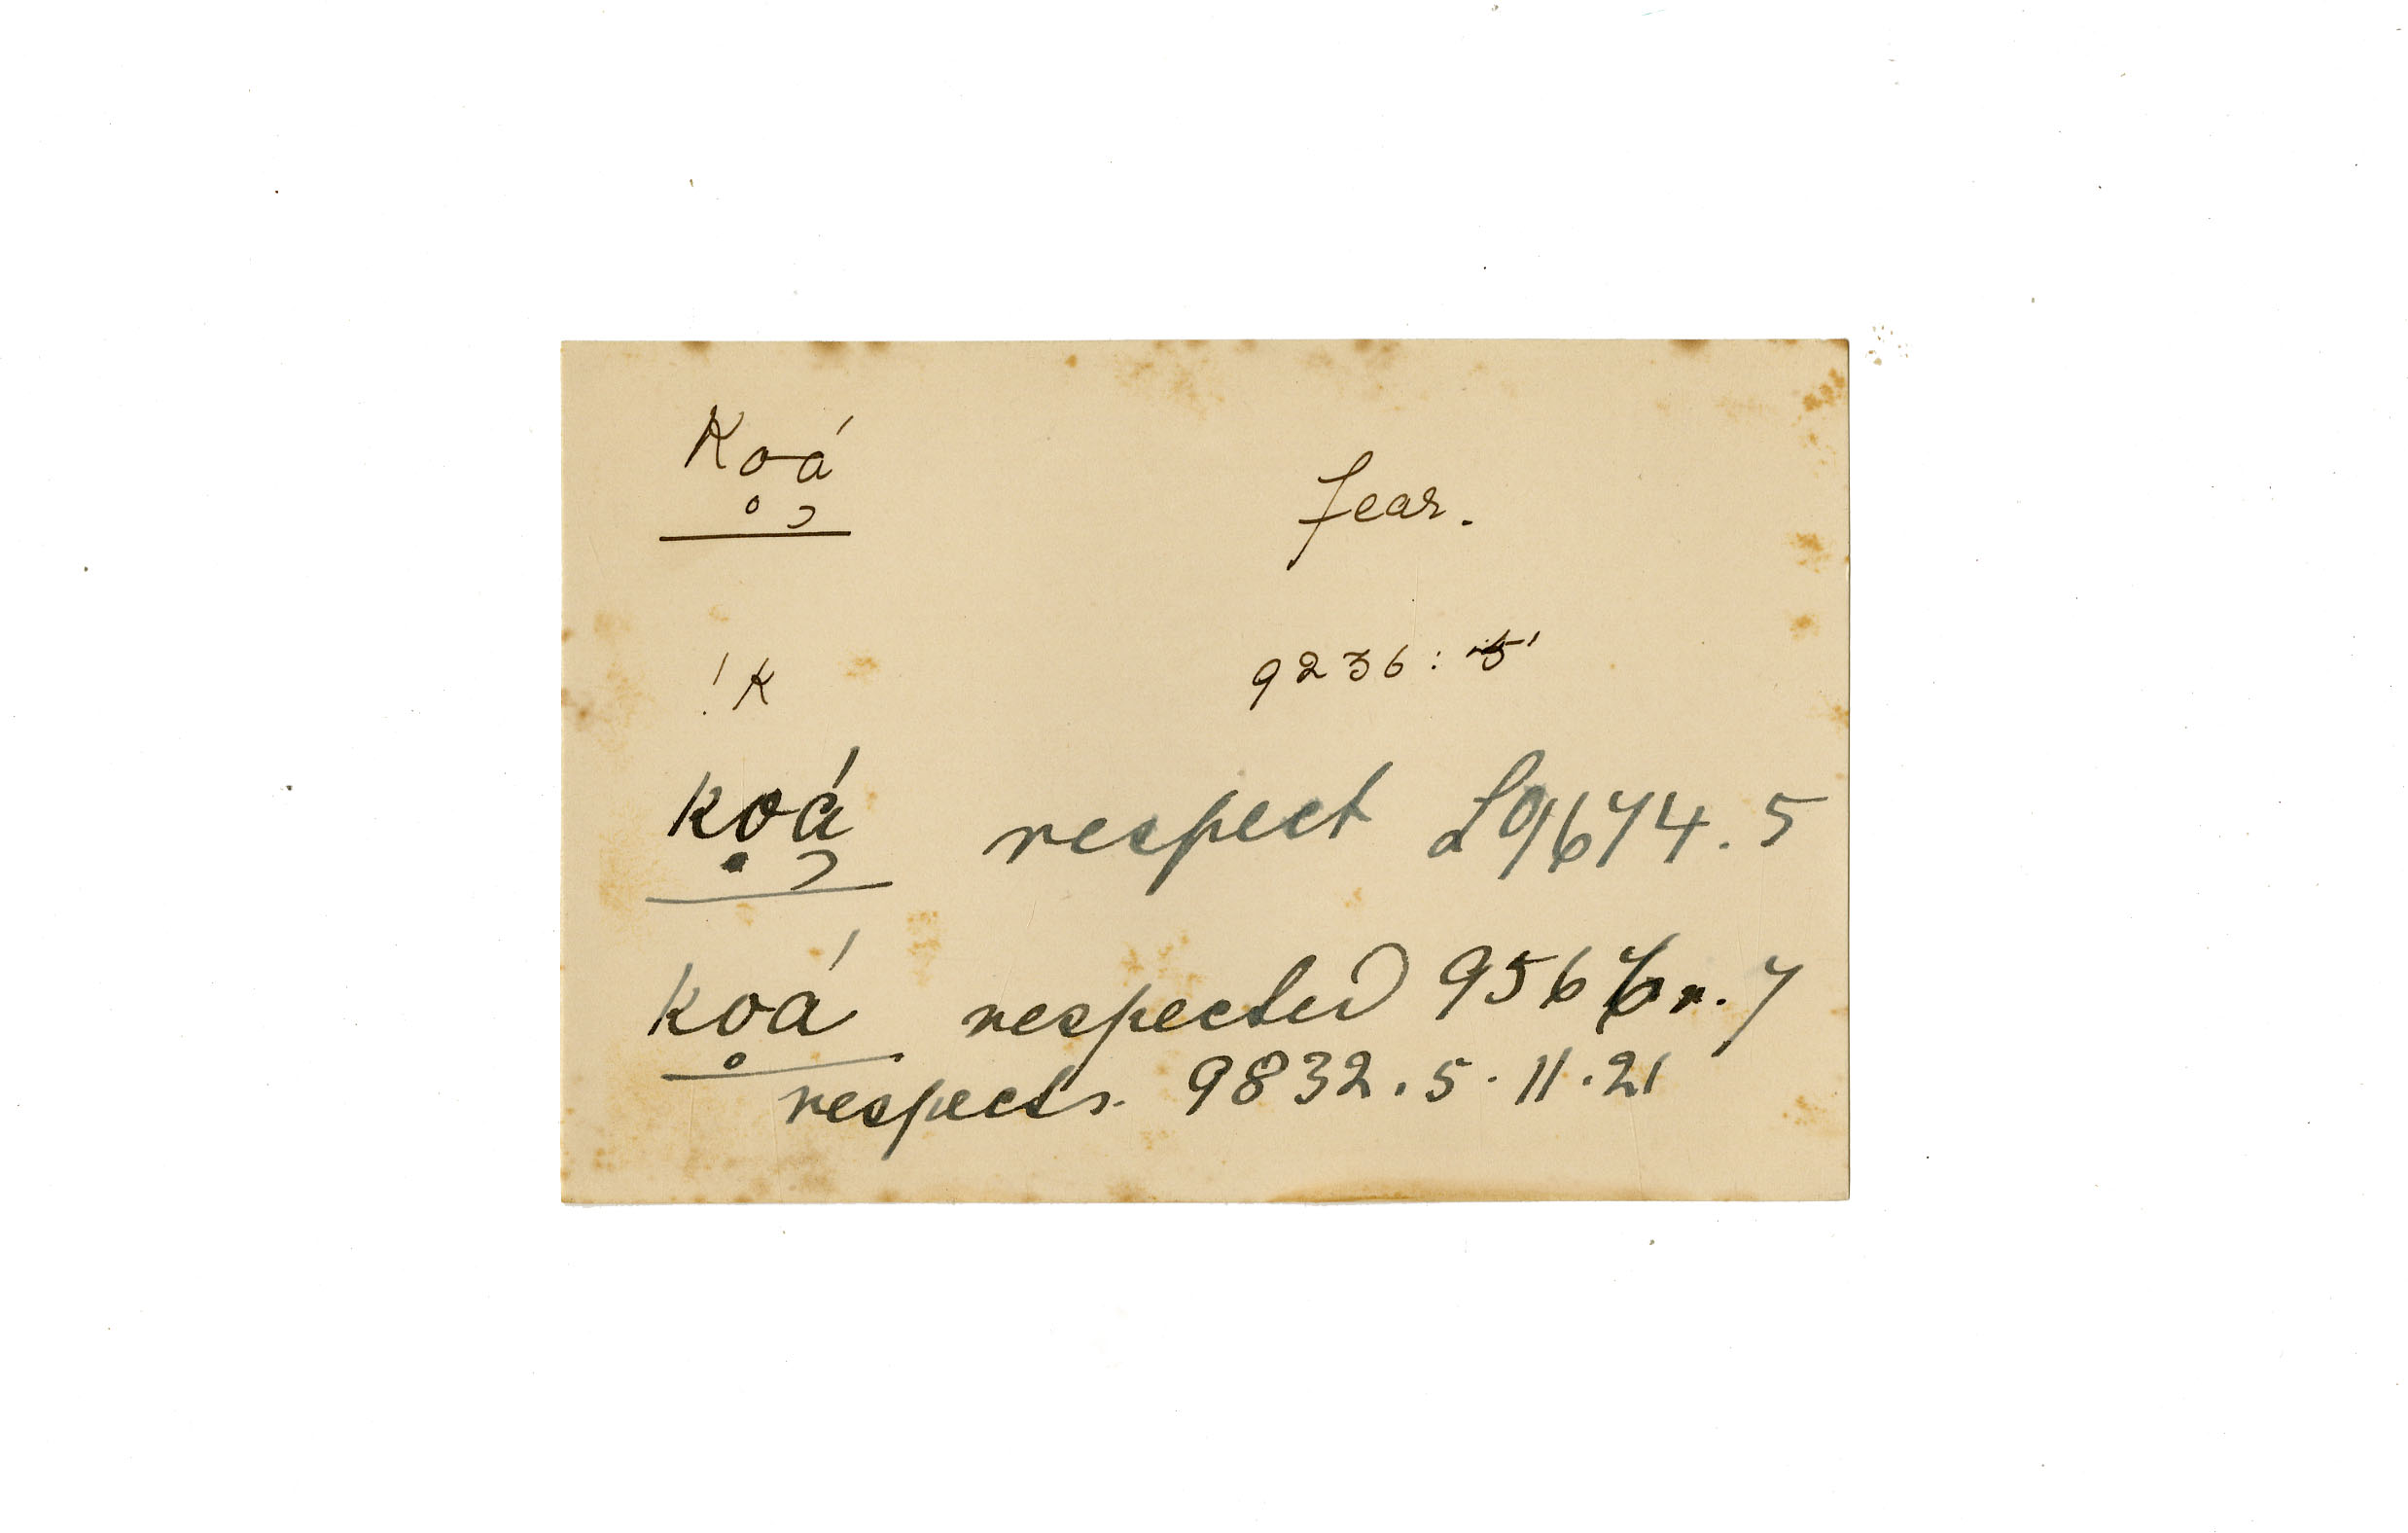 Koá fear.
!K 9236: 5'
koá respect L9674.5
koá respected 9566r.7
respects. 9832.5.11.21